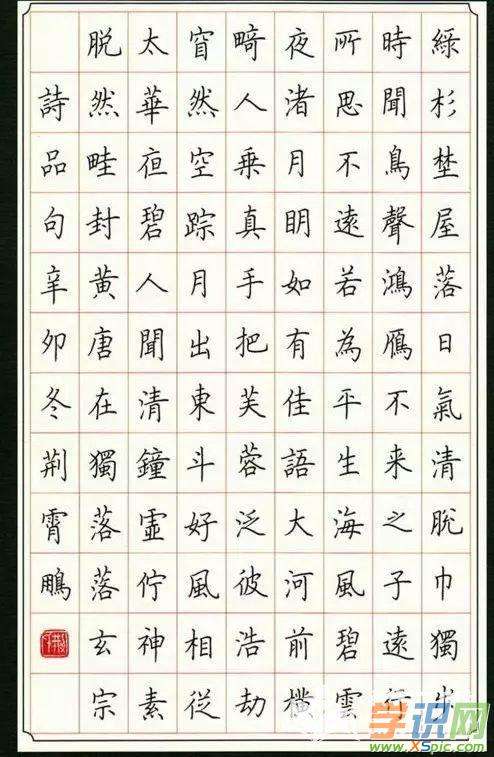 綠杉埜屋落日氣清脫巾獨步
時聞鳥聲鴻鴈不来之子遠行
所思不遠若為平生海風碧雲
夜渚月眀如有佳語大河前橫
畸人乘真手把芙蓉泛彼浩劫
窅然空踪月出東斗好風相從
太華亱碧人聞清鐘虛佇神素
脫然畦封黃唐在獨落落玄宗
詩品句辛卯冬荊霄鵬
学识网
www.XSpic.com